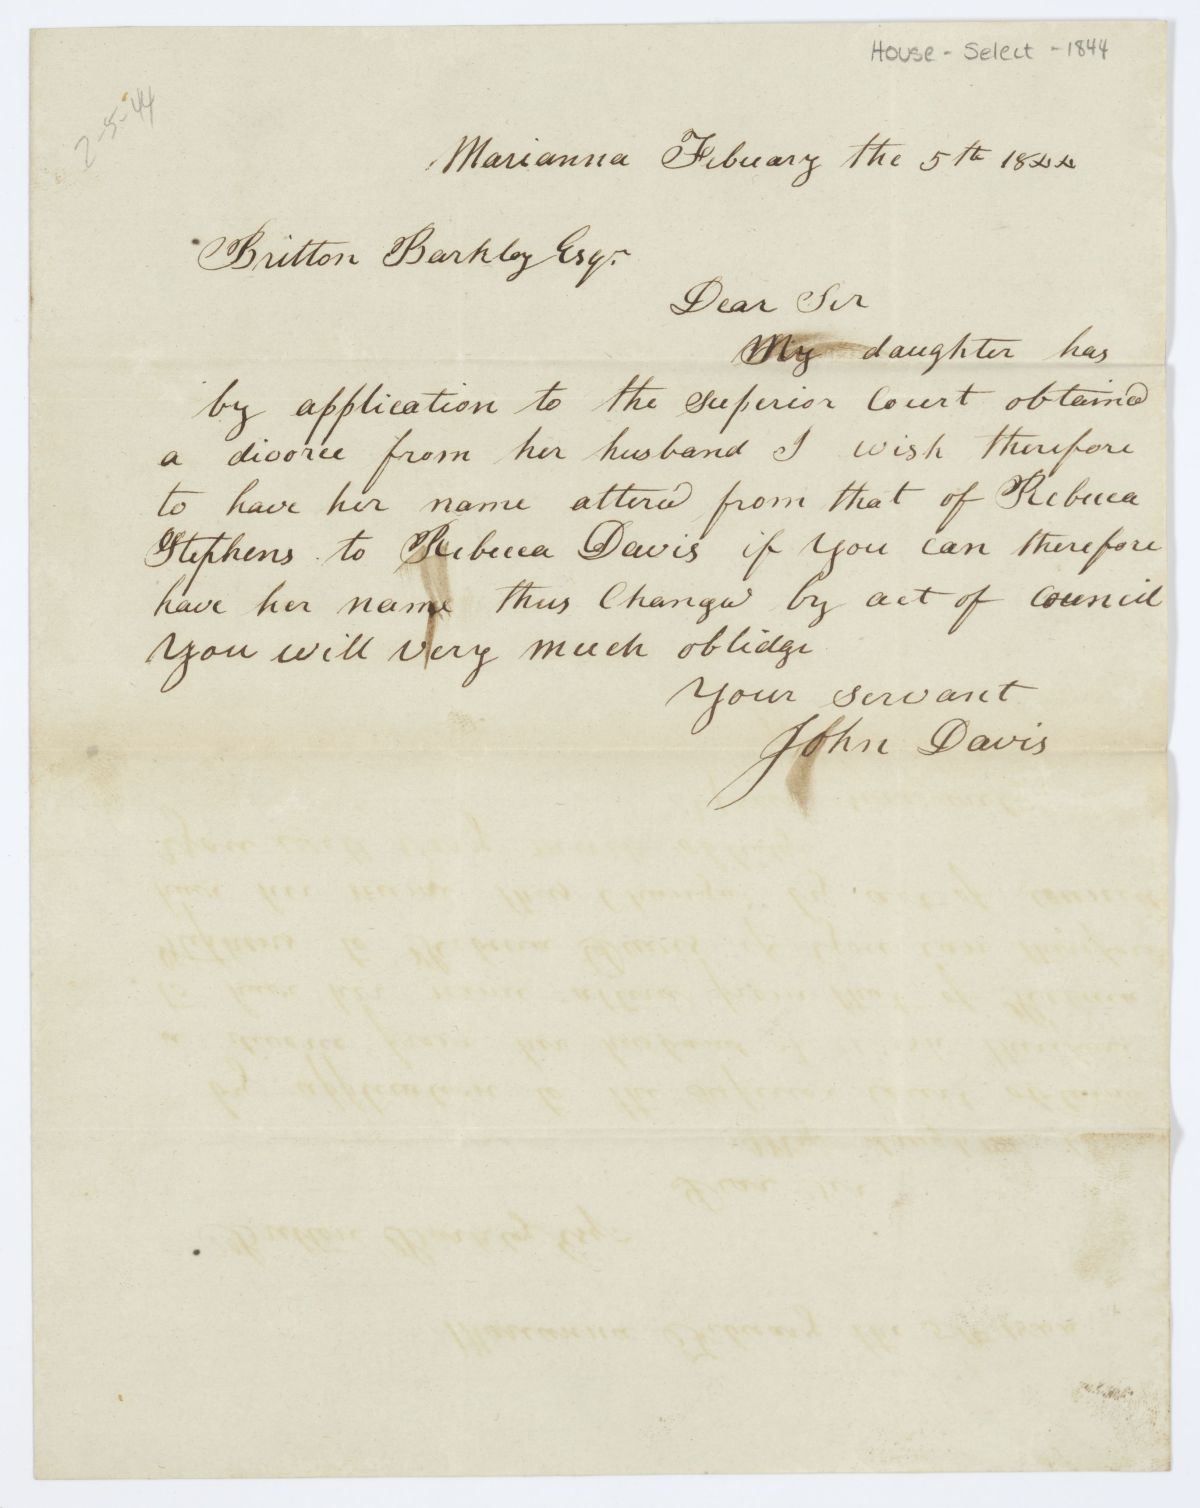 House - Select - 1844
2-5-44
Marianna Febuary the 5th 1844
Britton Barkley Esqr
Dear Sir
My daughter has
by application to the superior Court obtained
a divorce from her husband I wish therefore
to have her name altered from that of Rebecca
Stephens to Rebecca Davis if you can therefore
have her name thus Changed by act of council
you will very much oblidge
Your servant
John Davis